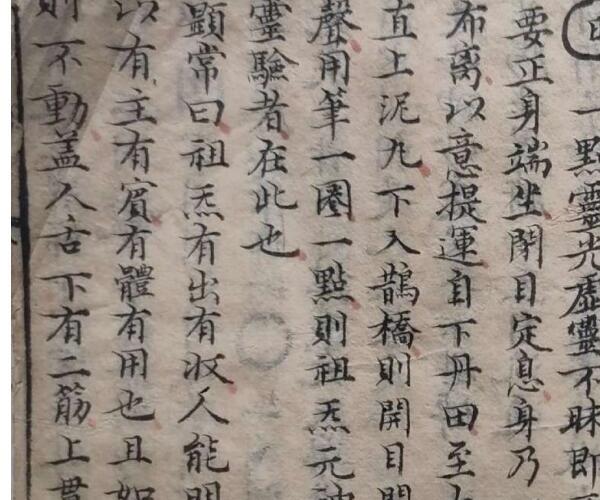 一點靈光虛靈不昧即
要正身端坐閉目定息身乃
布离以意提運自下丹田至
直上泥九下入鵲橋則開目
聲用筆一圈一點則祖炁元神
靈驗者在此也
顯常曰祖炁有出有收人能明
以有主有賓有體有用也且如
則不動盖人舌下有二筋上貫